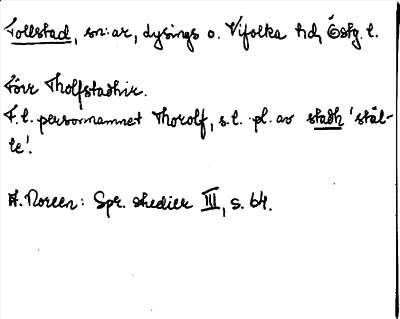 Tollstad, sn: ar, Lysings o. Vifolka hd, Östg. l.
Förr Tholfstadhir.
F. l. personnamnet Thorolf, s. l. pl. av stadh 'ställ-
le'.
A. Noreen: Spr. studier III, s. 64.